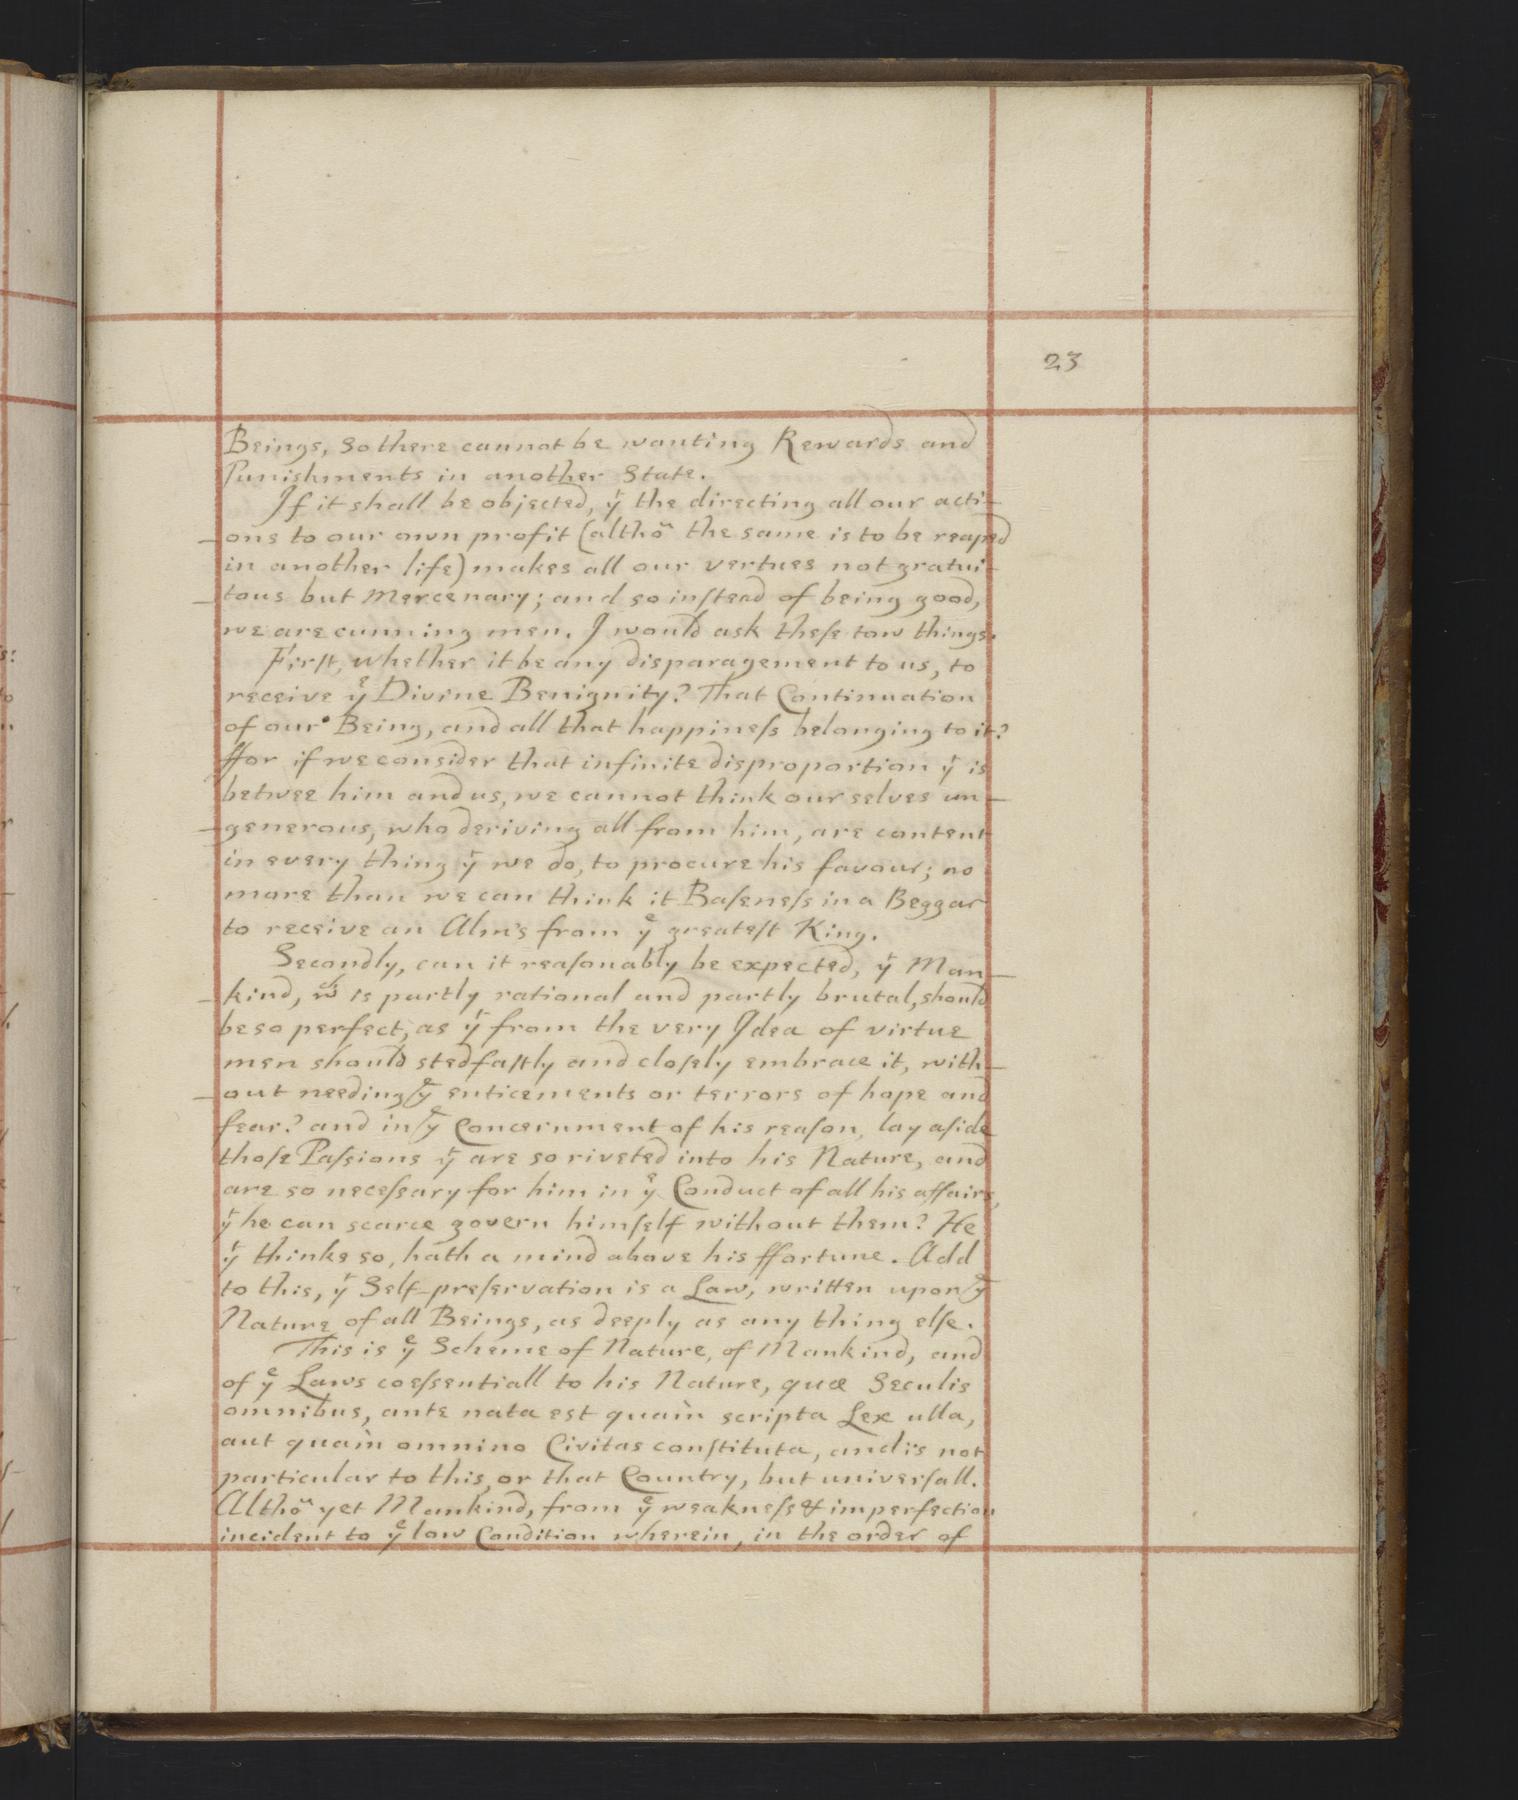 23
Beings, So there cannot be wanting Rewards and
Punishments in another State.
If it shall be objected, yt the directing all our acti-
-ons to our own profit (altho the same is to be reaped
in another life) makes all our vertues not gratui-
-tous but Mercenary; and so inſtead of being good,
we are cunning men. I would ask theſe tow things.
Firſt, whether it be any disparagement to us, to
receive ye Divine Benignity? That Continuation
of our Being, and all that happineſs belonging to it?
ffor if we consider that infinite disproportion yt is
betwee him and us, we cannot think our selves un-
-generous, who deriving all from him, are content
in every thing yt we do, to procure his favour; no
more than we can think it Baſeneſs in a Beggar
to receive an Alm's from ye greateſt King.
Secondly, can it reaſonably be expected, yt Man-
-kind, wch is partly rational and partly brutal, should
be so perfect, as yt from the very Idea of virtue
men should stedfaſtly and cloſely embrace it, with-
-out needing ye enticements or terrors of hope and
fear? and in ye Concernment of his reaſon, lay aſide
thoſe Paſsions yt are so riveted into his Nature, and
are so neceſsary for him in ye Conduct of all his affairs,
yt he can scarce govern himſelf without them? He
yt thinks so, hath a mind above his ffortune. Add
to this, yt Self-preſervation is a Law, written upon ye
Nature of all Beings, as deeply as any thing elſe.
This is ye Scheme of Nature, of Mankind, and
of ye Laws coeſsentiall to his Nature, quæ Seculis
omnibus, ante nata est quam̀ scripta Lex ulla,
aut quam̀ omnino Civitas conſtituta, and is not
particular to this, or that Country, but univerſall.
Altho yet Mankind, from ye weakneſs & imperfection
incident to ye low Condition wherein, in the order of